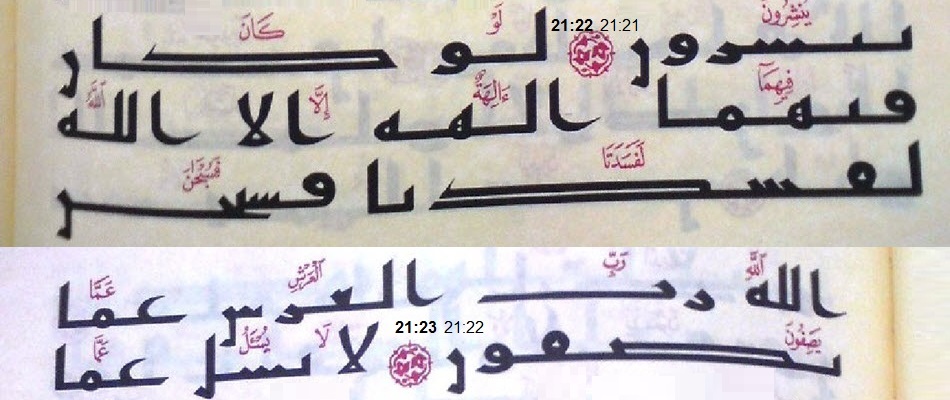 يُنْشِرُونَ لَوْ كَانَ
ينشرون 21:22 21:21 لو كان
فِيهِمَآ ءَالِهَةٌ إِلَّا ٱللَّهُ
فيهما الهه الا الله
لَفَسَدَتَا فَسُبْحَٰنَ
لفسدتا فسبحن
ٱللَّهِ رَبِّ ٱلْعَرْشِ عَمَّا
الله رب العرش عما
يَصِفُونَ لَا يُسْـَٔلُ عَمَّا
يصفون 21:23 21:22 لا يسل عما